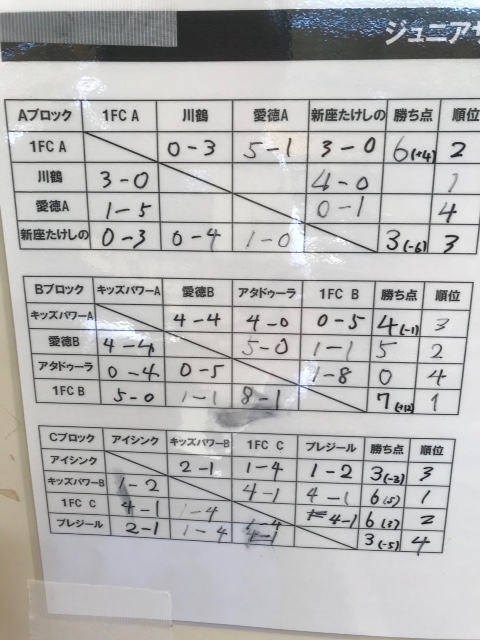 ジュニアサ
Aブロック 1FC A 川鶴 愛徳A 新座たけしの 勝ち点 順位
1FC A 0-3 5-1 3-0 6(+4) 2
川鶴 3-0 4-0 1
愛徳A 1-5 0-1 4
新座たけしの 0-3 0-4 1-0 3(-6) 3
Bブロック キッズパワーA 愛徳B アタドゥーラ 1FC B 勝ち点 順位
キッズパワーA 4-4 4-0 0-5 4(-1) 3
愛徳B 4-4 5-0 1-1 5 2
アタドゥーラ 0-4 0-5 1-8 0 4
1FC B 5-0 1-1 8-1 7(+12) 1
Cブロック アイシンク キッズパワーB 1FC C プレジール 勝ち点 順位
アイシンク 2-1 1-4 1-2 3(-3) 3
キッズパワーB 1-2 4-1 4-1 6(5) 1
1FC C 4-1 1-4 4-1 6(3) 2
プレジール 2-1 1-4 1-4 3(-5) 4